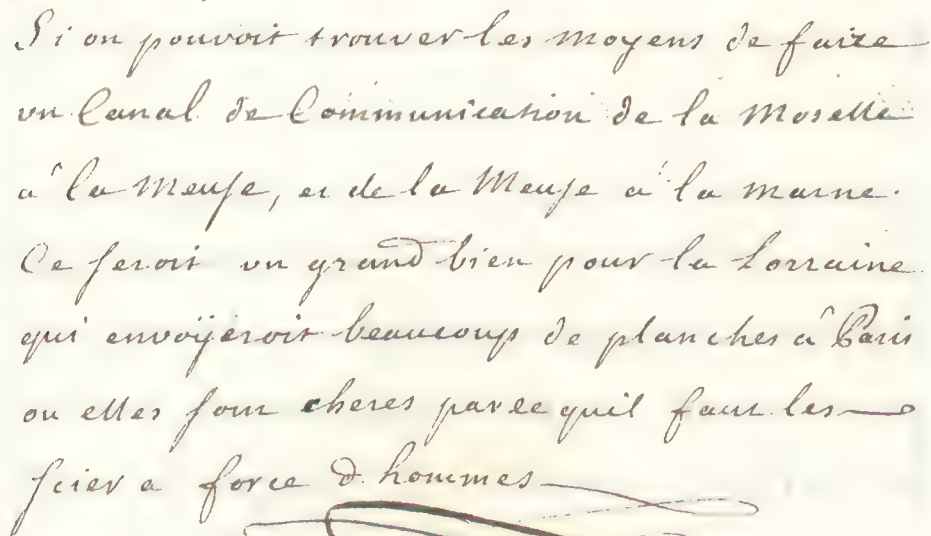 Si on pouvoit trouver les moyens de faire
un Canal de Communication de la Moselle
à la Meuse, et de la Meuse à la marne.
Ce seroit un grand bien pour la Lorraine
qui envoÿeroit beaucoup de planches à Paris
ou elles sont cheres parce quil faut les
scier a force d hommes